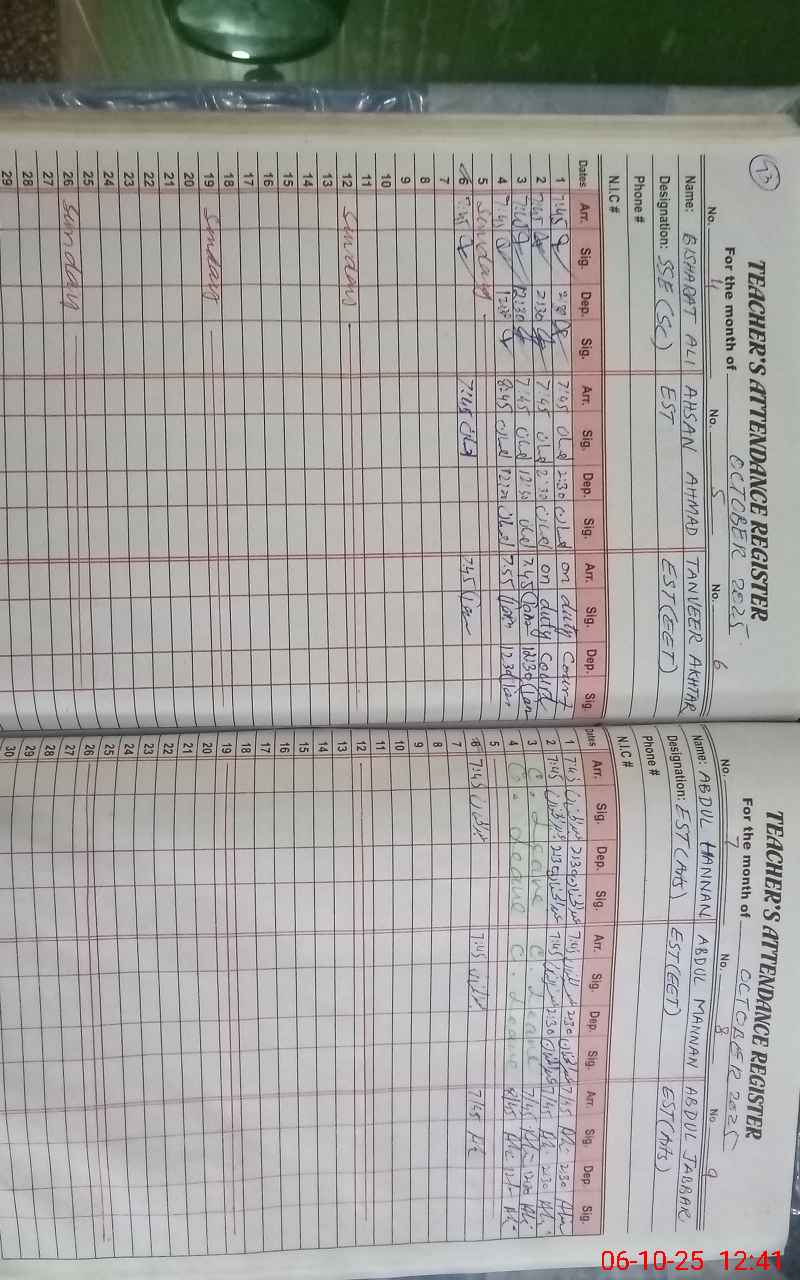 93
TEACHER'S ATTENDANCE REGISTER
For the month of OCTOBER 2025
No. 4 No. 5 No. 6
Name: BISHARAT ALI AHSAN AHMAD TANVEER AKHTAR
Designation: SSE (SC) EST EST(EET)
Phone #
N.I.C #
Dates Arr. Sig. Dep. Sig. Arr. Sig. Dep. Sig. Arr. Sig. Dep. Sig.
1 7:45 2:30 7:45 2:30 on duty Court
2 7:45 2:30 7:45 2:30 on duty Court
3 7:45 12:30 7:45 12:30 7:45 12:30
4 7:45 8:45 7:55 12:30
5 Sunday
6 7:45 7:45 7:45
7
8
9
10
11
12 Sunday
13
14
15
16
17
18
19 Sunday
20
21
22
23
24
25
26 Sunday
27
28
29
TEACHER'S ATTENDANCE REGISTER
For the month of OCTOBER 2025
No. 7 No. 8 No. 9
Name: ABDUL HANNAN ABDUL MANNAN ABDUL JABBAR
Designation: EST (Arts) EST(EET) EST(Arts)
Phone #
N.I.C #
Dates Arr. Sig. Dep. Sig. Arr. Sig. Dep. Sig. Arr. Sig. Dep. Sig.
1 7:45 2:30 7:45 2:30 7/45 2:30
2 7:45 2:30 7:45 2:30 7/45 2:30
3 C. Leave C. Leave 7/45
4 C. Leave C. Leave 8/45
5
6 7:45 7:45 7/45
7
8
9
10
11
12
13
14
15
16
17
18
19
20
21
22
23
24
25
26
27
28
29
30
06-10-25 12:41